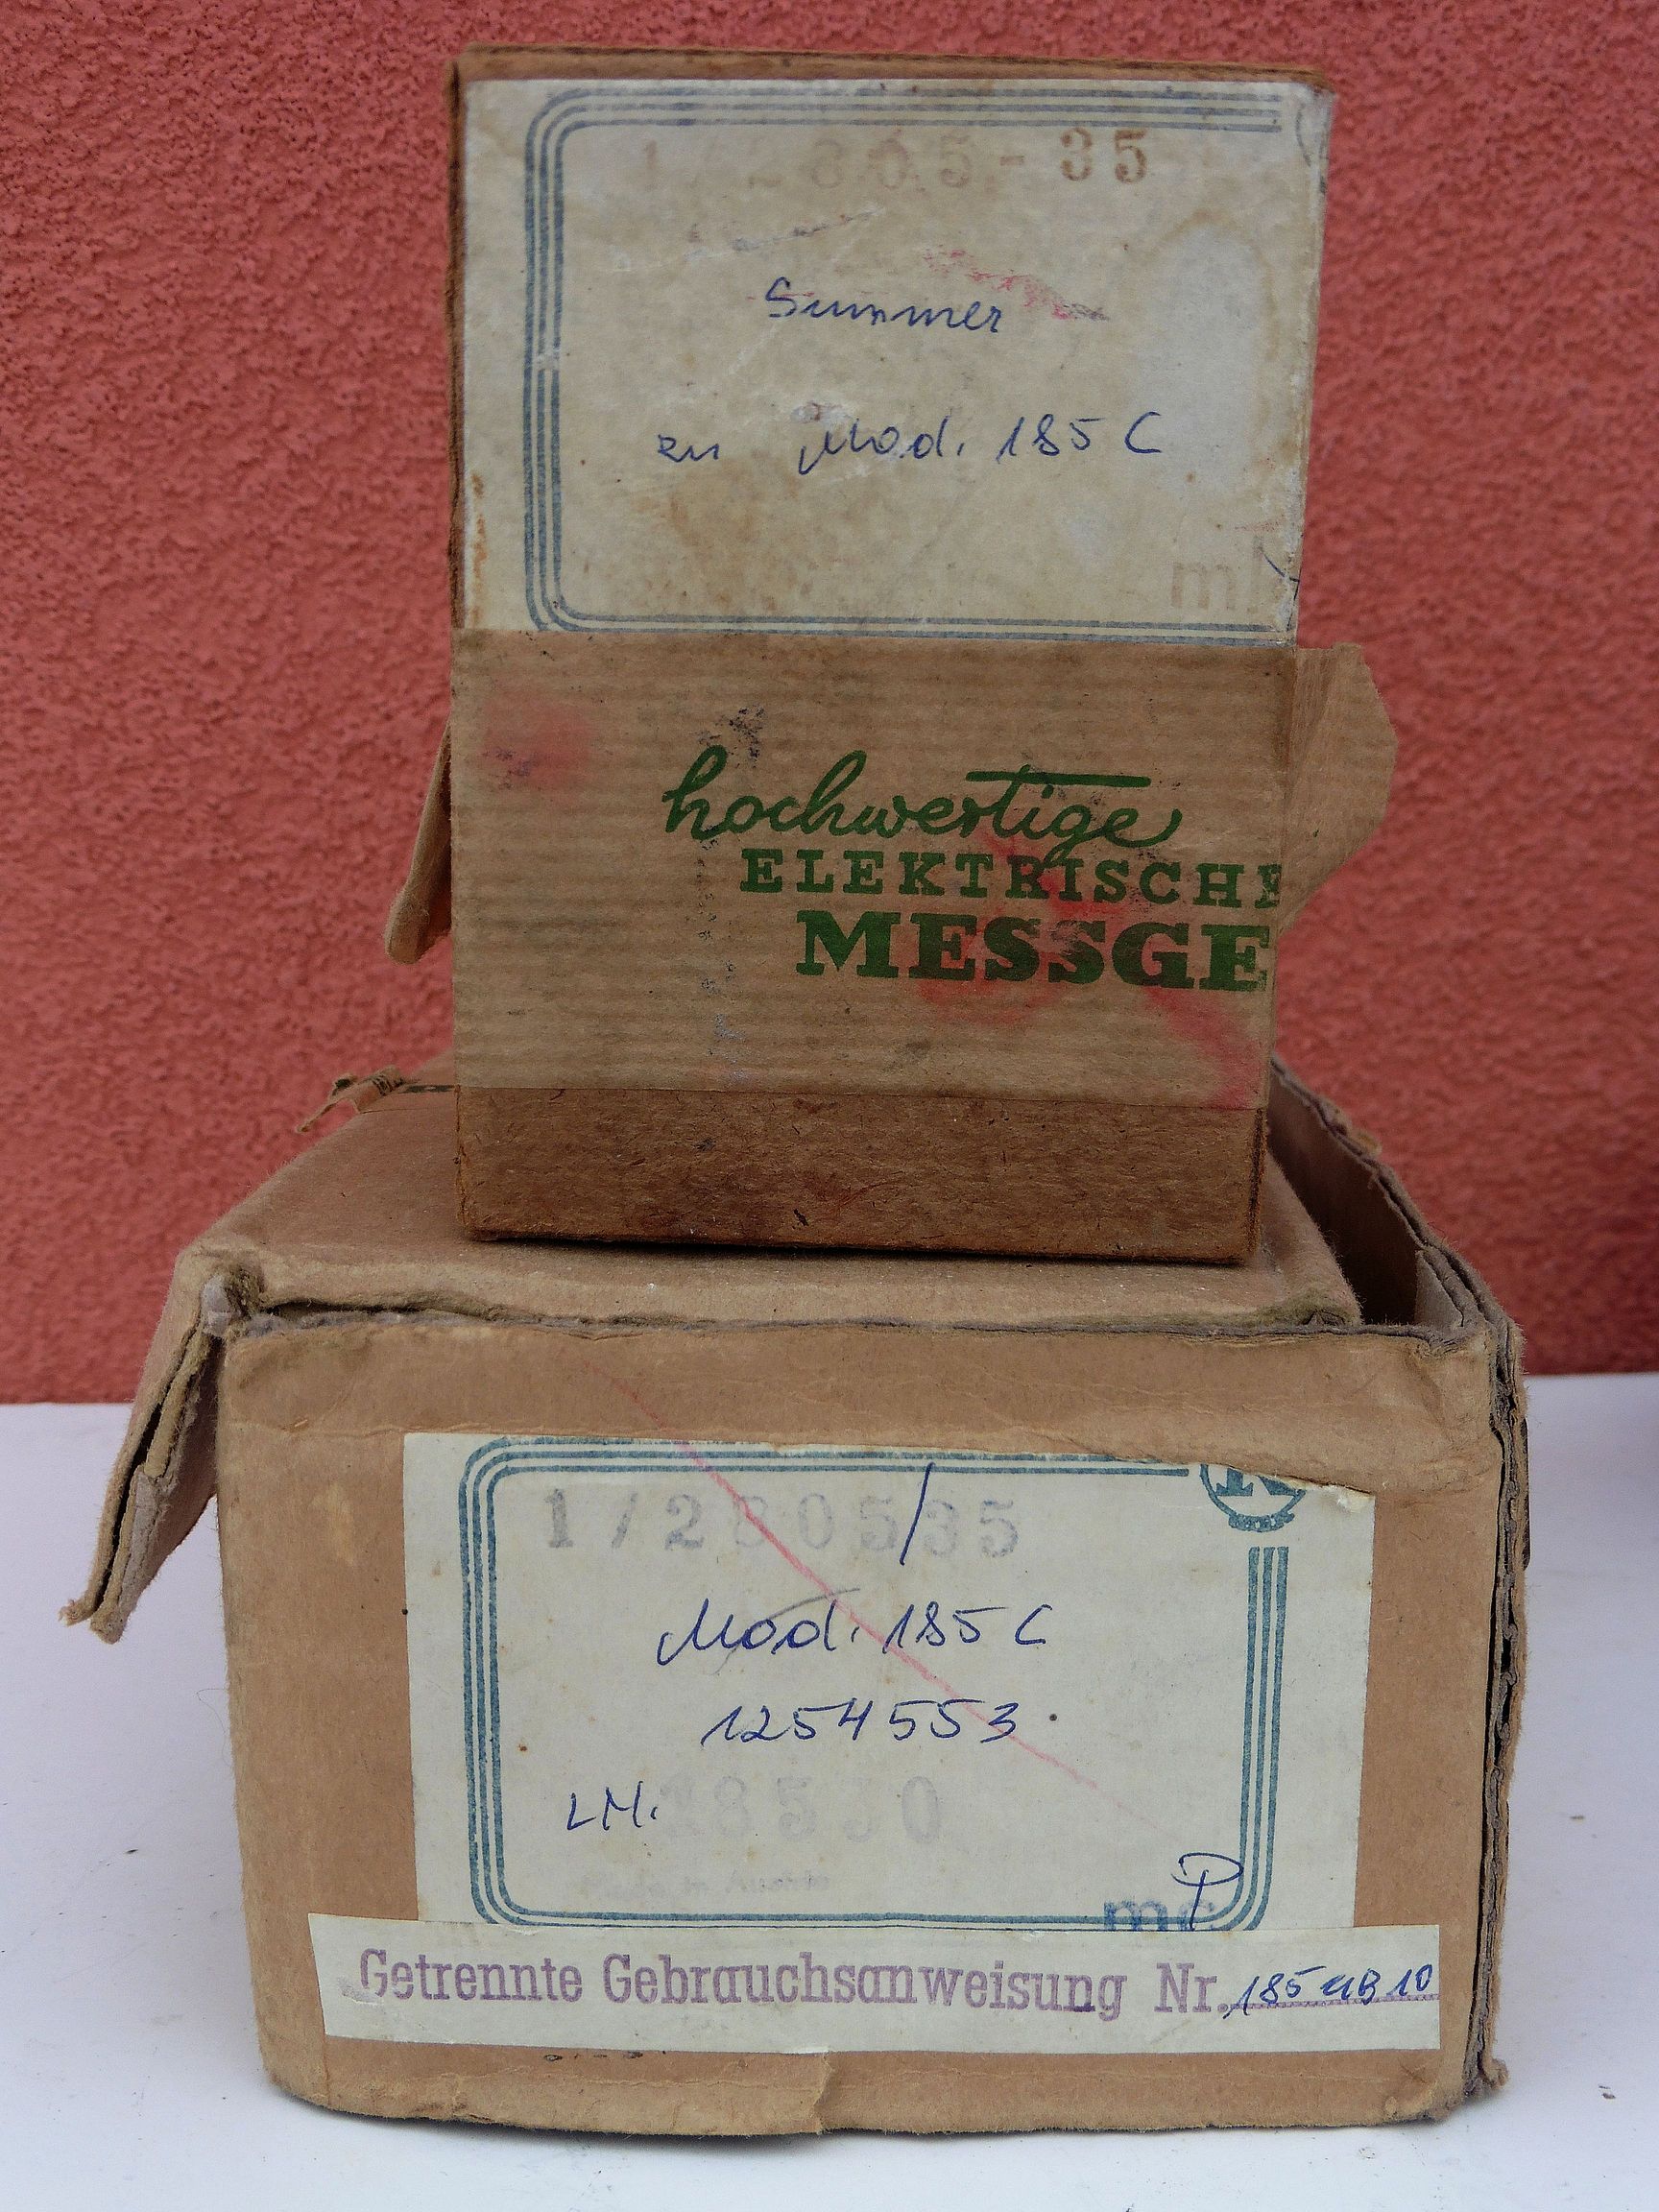 805-35
Summer
zu Mod. 185 C
hochwertige
ELEKTRISCHE
MESSGE
1/280535
Mod. 185 C
1254553.
LM. 18500
Made in Austria
P
Getrennte Gebrauchsanweisung Nr. 185 UB 10